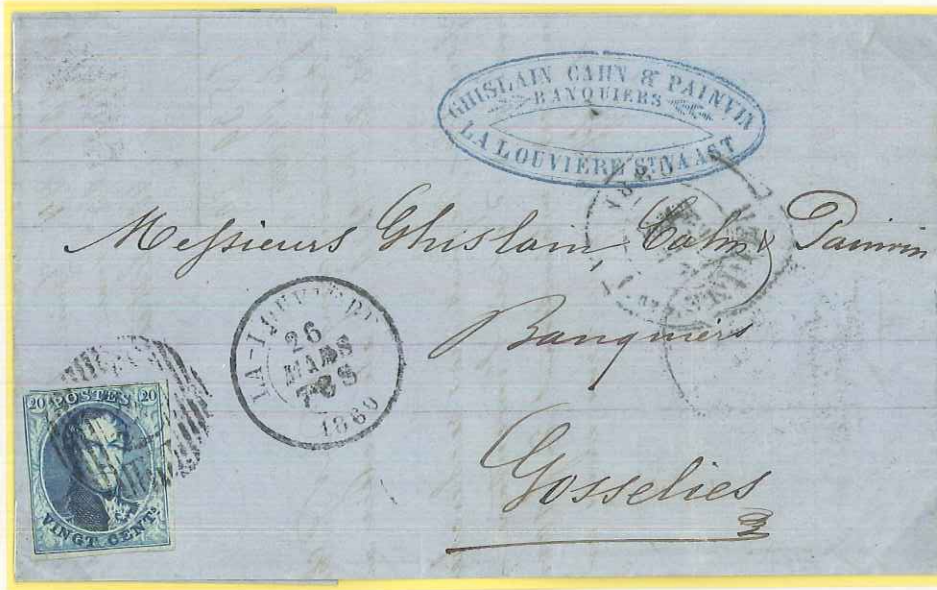 GHISLAIN CAHN & PAINVIN
BANQUIERS
LA LOUVIÈRE ST VAAST
Messieurs Ghislain, Cahn & Painvin
Banquiers
Gosselies
LA-LOUVIÈRE
26
MARS
7-S
1860
20 POSTES 20
VINGT CENT.